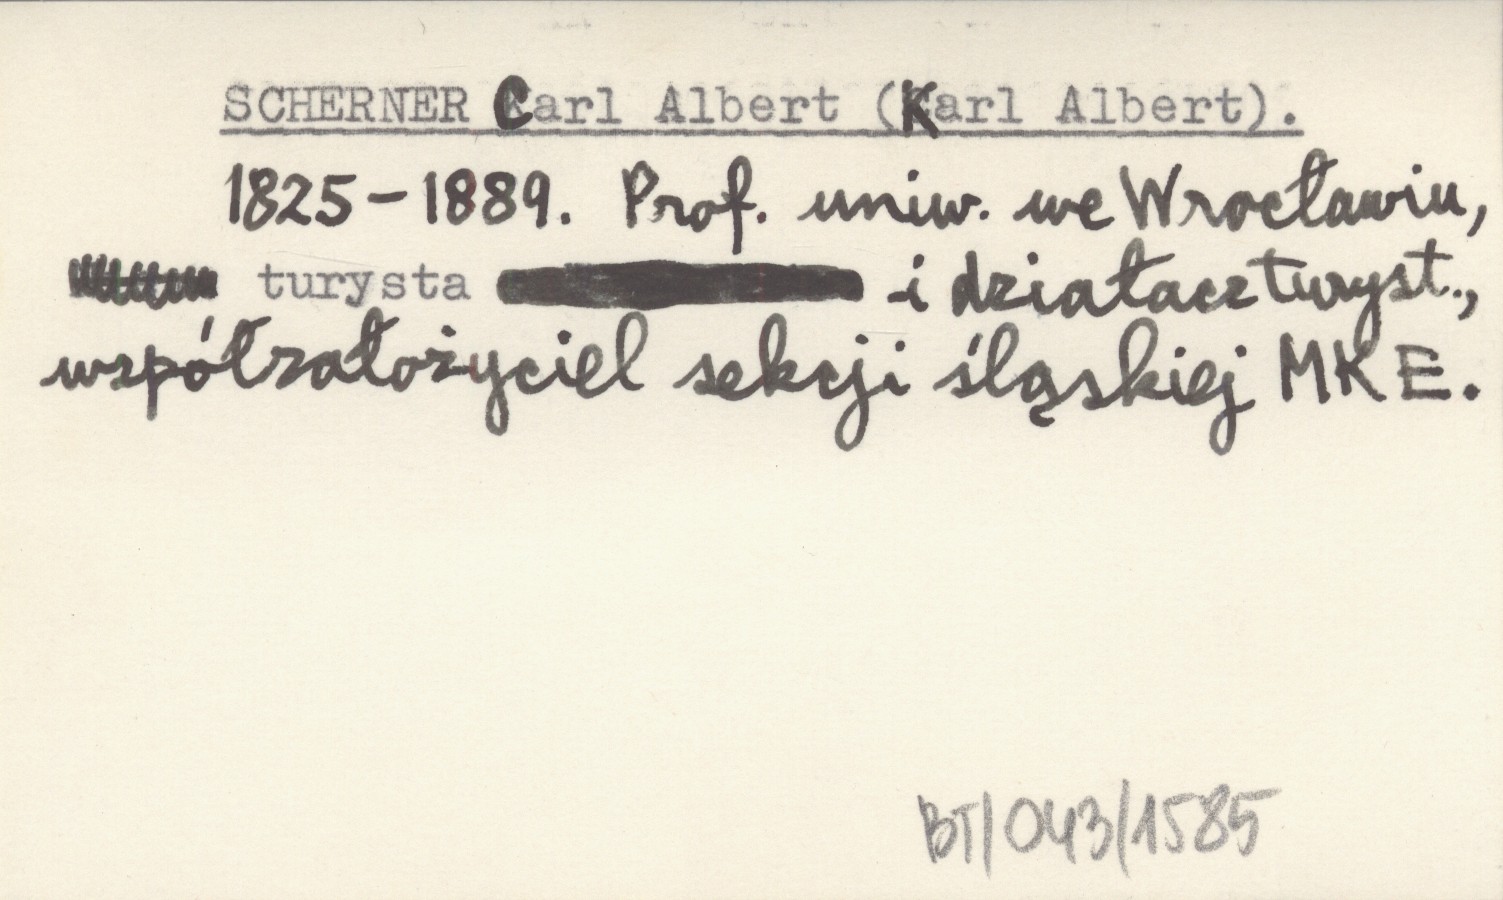 SCHERNER Carl Albert (Karl Albert).
1825-1889. Prof. uniw. we Wrocławiu,
turysta i działacz turyst.,
współzałożyciel sekcji śląskiej MKE.
BT/043/1585